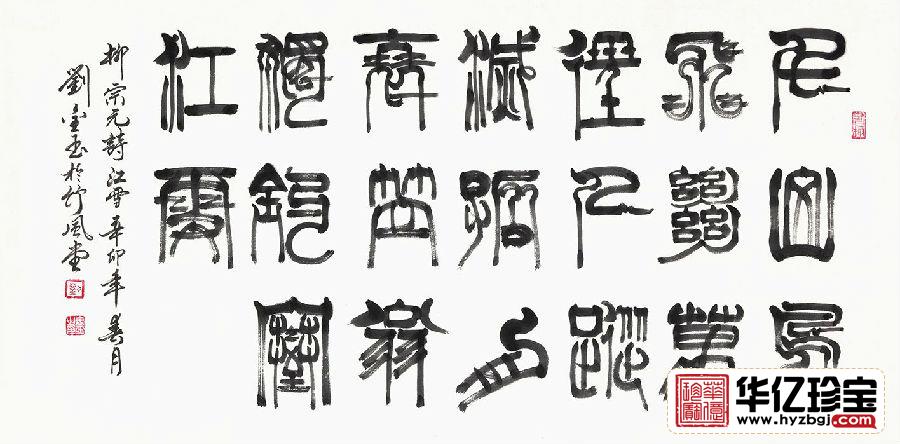 千山鳥
飛絕萬
徑人蹤
滅孤舟
蓑笠翁
獨釣寒
江雪
柳宗元詩江雪辛卯年春月
劉金玉於竹風堂
华亿珍宝
www.hyzbgj.com